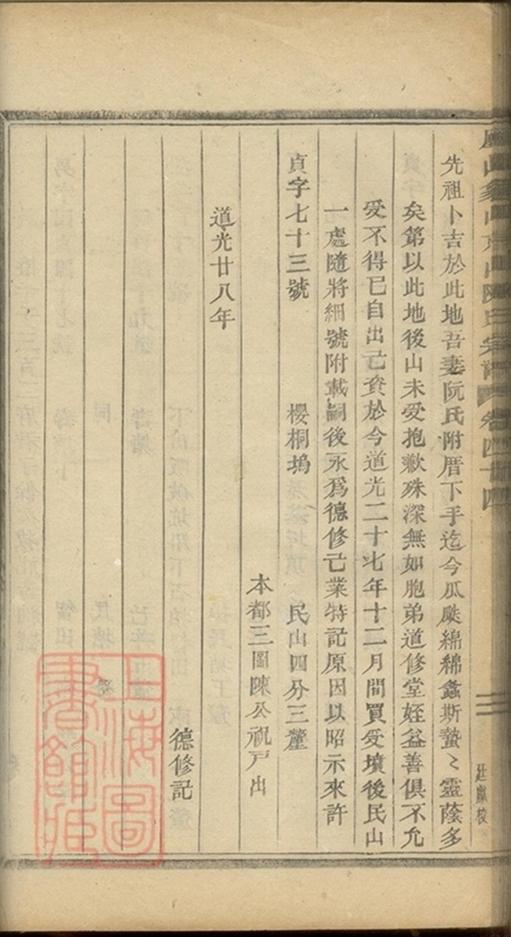 陳氏宗譜 卷四十四
先祖卜吉於此地吾妻阮氏附厝下手迄今瓜瓞綿綿螽斯蟄〻靈蔭多
矣第以此地後山未受抱歉殊深無如胞弟道修堂姪益善俱不允
受不得已自出己資於今道光二十七年十二月間買受墳後民山
一處隨將細號附載嗣後永爲德修己業特記原因以昭示來許
貞字七十三號 櫻桐塢 民山四分三釐
本都三圖陳公祝戶出
道光廿八年
德修記
上海圖書館藏